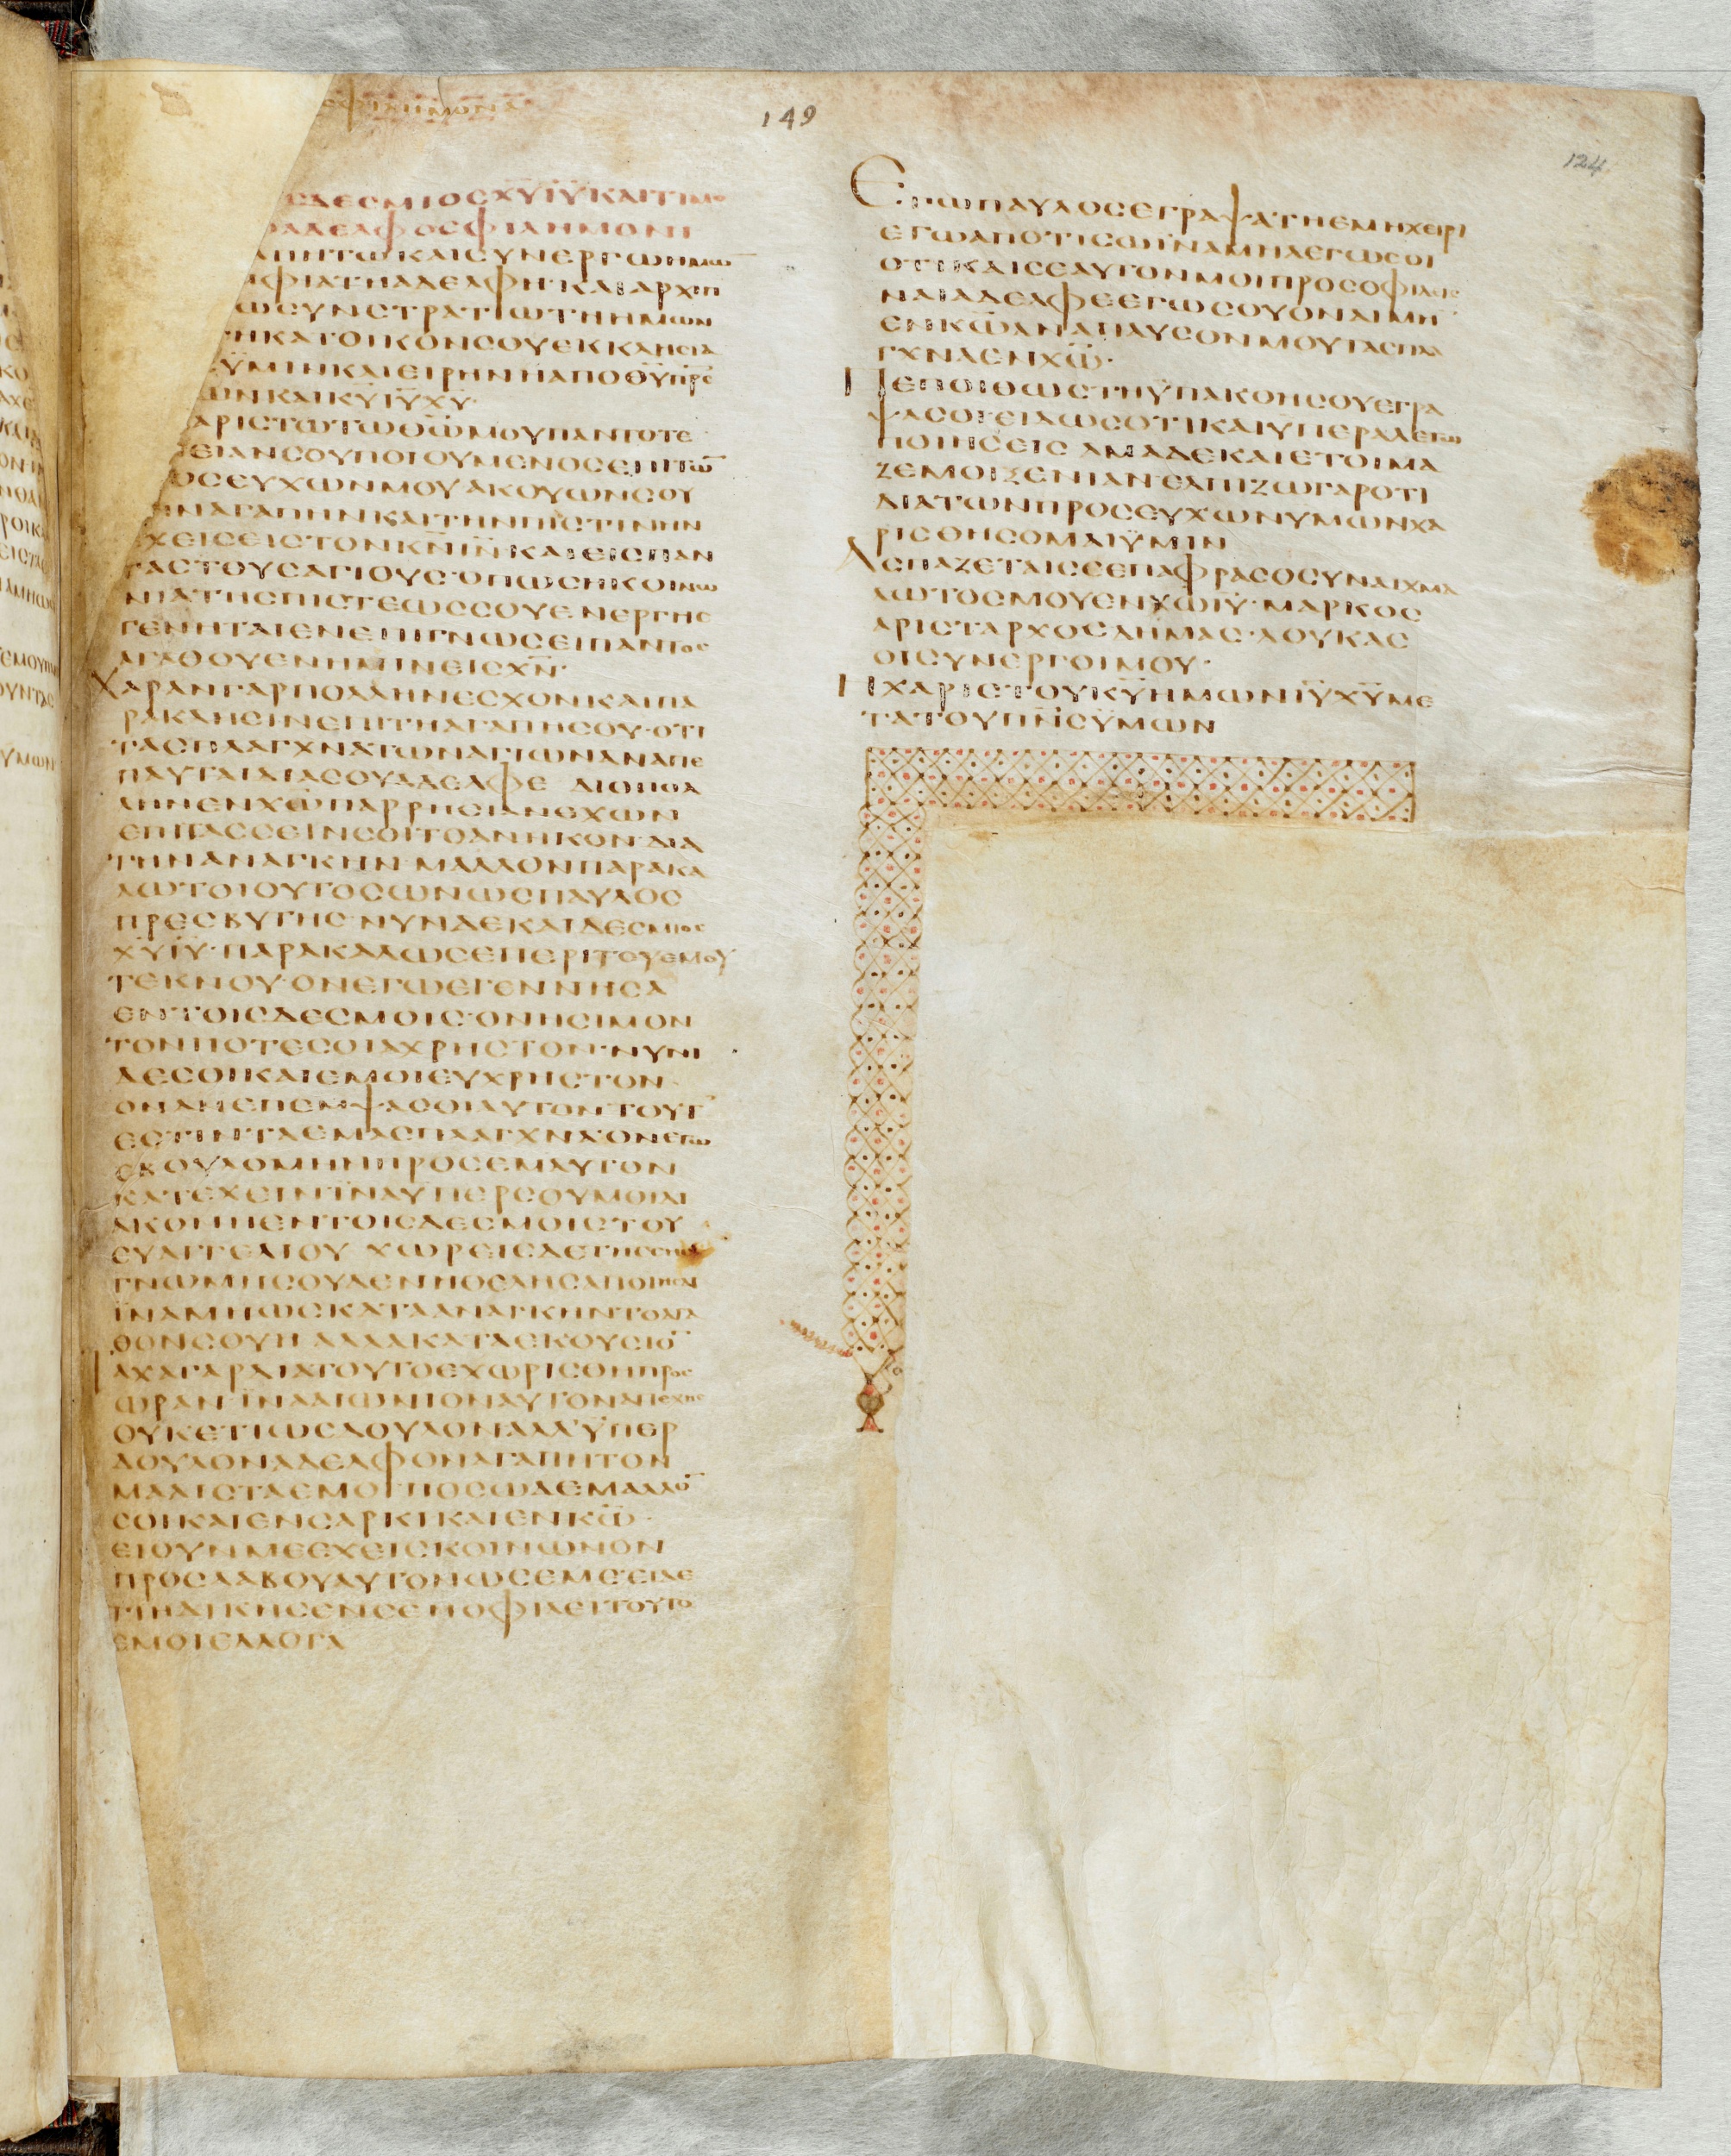 ΦΙΛΗΜΟΝΑ
149
124
ΔΕΣΜΙΟΣΧΥΙΥΚΑΙΤΙΜΟ
ΑΔΕΛΦΟΣΦΙΛΗΜΟΝΙ
ΠΗΤΩΚΑΙΣΥΝΕΡΓΩΗΜΩ̅
ΦΙΑΤΗΑΔΕΛΦΗ·ΚΑΙΑΡΧΙΠ
ΩΣΥΝΣΤΡΑΤΙΩΤΗΗΜΩΝ
ΗΚΑΤΟΙΚΟΝΣΟΥΕΚΚΛΗΣΙΑ
ΫΜΙΝΚΑΙΕΙΡΗΝΗΑΠΟΘΥΠΡΣ
ΩΝΚΑΙΚΥΙΥΧΥ·
ΑΡΙΣΤΩΤΩΘΩΜΟΥΠΑΝΤΟΤΕ
ΕΙΑΝΣΟΥΠΟΙΟΥΜΕΝΟΣΕΠΙΤΩ̅
ΟΣΕΥΧΩΝΜΟΥΑΚΟΥΩΝΣΟΥ
ΗΝΑΓΑΠΗΝΚΑΙΤΗΝΠΙΣΤΙΝΗΝ
ΧΕΙΣΕΙΣΤΟΝΚΝΙΝΚΑΙΕΙΣΠΑΝ
ΤΑΣΤΟΥΣΑΓΙΟΥΣ·ΟΠΩΣΗΚΟΙΝΩ
ΝΙΑΤΗΣΠΙΣΤΕΩΣΣΟΥΕΝΕΡΓΗΣ
ΓΕΝΗΤΑΙΕΝΕΠΙΓΝΩΣΕΙΠΑΝΤΟΣ
ΑΓΑΘΟΥΕΝΗΜΙΝΕΙΣΧΝ·
ΧΑΡΑΝΓΑΡΠΟΛΛΗΝΕΣΧΟΝΚΑΙΠΑ
ΡΑΚΛΗΣΙΝΕΠΙΤΗΑΓΑΠΗΣΟΥ·ΟΤΙ
ΤΑΣΠΛΑΓΧΝΑΤΩΝΑΓΙΩΝΑΝΑΠΕ
ΠΑΥΤΑΙΔΙΑΣΟΥΑΔΕΛΦΕ ΔΙΟΠΟΛ
ΛΗΝΕΝΧΩΠΑΡΡΗΣΙΑΝΕΧΩΝ
ΕΠΙΤΑΣΣΕΙΝΣΟΙΤΟΑΝΗΚΟΝ·ΔΙΑ
ΤΗΝΑΝΑΓΚΗΝ·ΜΑΛΛΟΝΠΑΡΑΚΑ
ΛΩΤΟΙΟΥΤΟΣΩΝΩΣΠΑΥΛΟΣ
ΠΡΕΣΒΥΤΗΣ·ΝΥΝΔΕΚΑΙΔΕΣΜΙΟΣ
ΧΥΙΥ·ΠΑΡΑΚΑΛΩΣΕΠΕΡΙΤΟΥΕΜΟΥ
ΤΕΚΝΟΥ·ΟΝΕΓΩΕΓΕΝΝΗΣΑ
ΕΝΤΟΙΣΔΕΣΜΟΙΣ·ΟΝΗΣΙΜΟΝ
ΤΟΝΠΟΤΕΣΟΙΑΧΡΗΣΤΟΝ·ΝΥΝΙ
ΔΕΣΟΙΚΑΙΕΜΟΙΕΥΧΡΗΣΤΟΝ
ΟΝΑΝΕΠΕΜΨΑΣΟΙΑΥΤΟΝΤΟΥΤ
ΕΣΤΙΝΤΑΕΜΑΣΠΛΑΓΧΝΑ·ΟΝΕΓΩ
ΕΒΟΥΛΟΜΗΝΠΡΟΣΕΜΑΥΤΟΝ
ΚΑΤΕΧΕΙΝΪΝΑΫΠΕΡΣΟΥΜΟΙΔΙ
ΑΚΟΝΗΕΝΤΟΙΣΔΕΣΜΟΙΣΤΟΥ
ΕΥΑΓΓΕΛΙΟΥ ΧΩΡΕΙΣΔΕΤΗΣΣΗΣ
ΓΝΩΜΗΣΟΥΔΕΝΗΘΕΛΗΣΑΠΟΙΗΣΑΙ
ΪΝΑΜΗΩΣΚΑΤΑΑΝΑΓΚΗΝΤΟΑΓΑ
ΘΟΝΣΟΥΗ ΑΛΛΑΚΑΤΑΕΚΟΥΣΙΟ̅
ΑΧΑΓΑΡΔΙΑΤΟΥΤΟΕΧΩΡΙΣΘΗΠΡΟΣ
ΩΡΑΝ·ΪΝΑΑΙΩΝΙΟΝΑΥΤΟΝΑΠΕΧΗΣ
ΟΥΚΕΤΙΩΣΔΟΥΛΟΝΑΛΛΫΠΕΡ
ΔΟΥΛΟΝΑΔΕΛΦΟΝΑΓΑΠΗΤΟΝ
ΜΑΛΙΣΤΑΕΜΟΙΠΟΣΩΔΕΜΑΛΛΟ̅
ΣΟΙΚΑΙΕΝΣΑΡΚΙΚΑΙΕΝΚΩ·
ΕΙΟΥΝΜΕΕΧΕΙΣΚΟΙΝΩΝΟΝ
ΠΡΟΣΛΑΒΟΥΑΥΤΟΝΩΣΕΜΕ·ΕΙΔΕ
ΤΙΗΔΙΚΗΣΕΝΣΕΗΟΦΙΛΕΙΤΟΥΤΟ
ΕΜΟΙΕΛΛΟΓΑ
ΕΓΩΠΑΥΛΟΣΕΓΡΑΨΑΤΗΕΜΗΧΕΙΡΙ
ΕΓΩΑΠΟΤΙΣΩΪΝΑΜΗΛΕΓΩΣΟΙ
ΟΤΙΚΑΙΣΕΑΥΤΟΝΜΟΙΠΡΟΣΟΦΙΛΕΙΣ
ΝΑΙΑΔΕΛΦΕΕΓΩΣΟΥΟΝΑΙΜΗ
ΕΝΚΩΑΝΑΠΑΥΣΟΝΜΟΥΤΑΣΠΛΑ
ΓΧΝΑΕΝΧΩ·
ΠΕΠΟΙΘΩΣΤΗΫΠΑΚΟΗΣΟΥΕΓΡΑ
ΨΑΣΟΙΕΙΔΩΣΟΤΙΚΑΙΫΠΕΡΑΛΕΓΩ
ΠΟΙΗΣΕΙΣ ΑΜΑΔΕΚΑΙΕΤΟΙΜΑ
ΖΕΜΟΙΞΕΝΙΑΝ·ΕΛΠΙΖΩΓΑΡΟΤΙ
ΔΙΑΤΩΝΠΡΟΣΕΥΧΩΝΥΜΩΝΧΑ
ΡΙΣΘΗΣΟΜΑΙΫΜΙΝ
ΑΣΠΑΖΕΤΑΙΣΕΕΠΑΦΡΑΣΟΣΥΝΑΙΧΜΑ
ΛΩΤΟΣΜΟΥΕΝΧΩΙΥ·ΜΑΡΚΟΣ
ΑΡΙΣΤΑΡΧΟΣΔΗΜΑΣ·ΛΟΥΚΑΣ
ΟΙΣΥΝΕΡΓΟΙΜΟΥ·
ΗΧΑΡΙΣΤΟΥΚΥΗΜΩΝΙΥΧΥΜΕ
ΤΑΤΟΥΠΝΣΫΜΩΝ